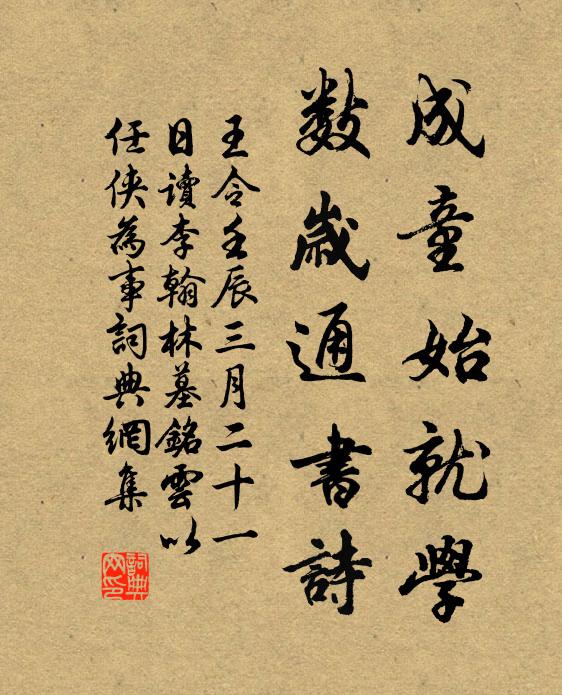 成童始就學
數歲通書詩
王令壬辰三月二十一
日讀李翰林墓銘雲以
任俠為事詞典網集
詞典網印